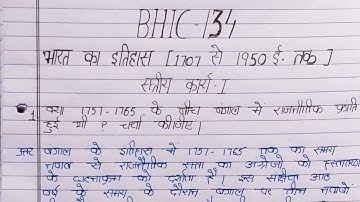 BHIC-134
भारत का इतिहास [1707 से 1950 ई. तक]
सत्रीय कार्य-I
1 क्या 1757-1765 के बीच बंगाल में राजनीतिक क्रांति
हुई थी ? चर्चा कीजिए।
उत्तर बंगाल के इतिहास में 1757-1765 तक का समय
नवाब से राजनीतिक सत्ता का अंग्रेजों को हस्तांतरण
के को दर्शाता है। इस आठ
वर्ष के समय के दौरान बंगाल पर तीन नवाबों